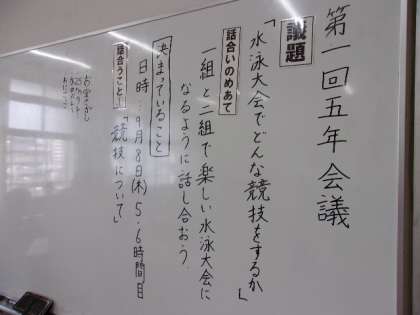 第一回五年会議
議題
「水泳大会でどんな競技をするか」
話合いのめあて
一組と二組で楽しい水泳大会に
なるように話し合おう。
決まっていること
日時…9月8日(木)5.6時間目
話合うこと
「競技について」
お宝さがし